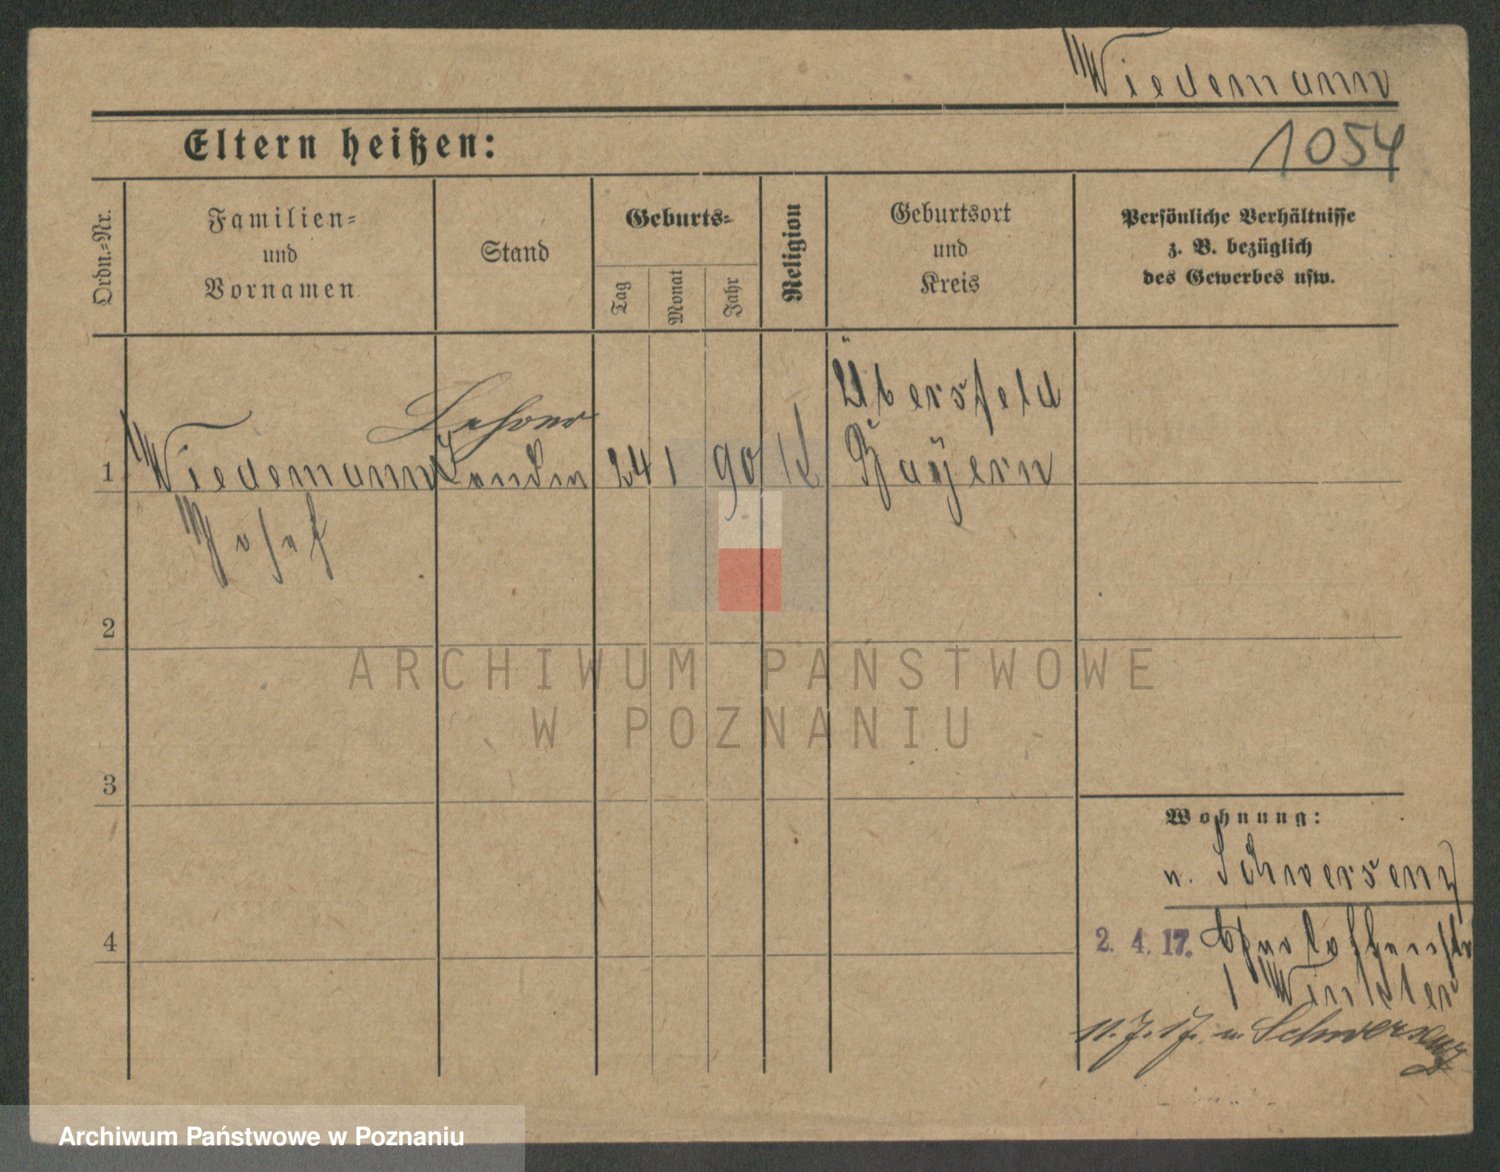 Wiedemann
Eltern heißen:
1054
Ordn.=Nr.
Familien=
und
Vornamen
Stand
Geburts=
Tag
Monat
Jahr
Religion
Geburtsort
und
Kreis
Persönliche Verhältnisse
z. B. bezüglich
des Gewerbes usw.
Lehrer
Übersfeld
1 Wiedemann 24 1 90 K Bayern
Josef
2
3
4
Wohnung:
n. Schwersenz
2. 4. 17.
1 Winkler
11.7.17. n. Schwersenz
ARCHIWUM PAŃSTWOWE
W POZNANIU
Archiwum Państwowe w Poznaniu